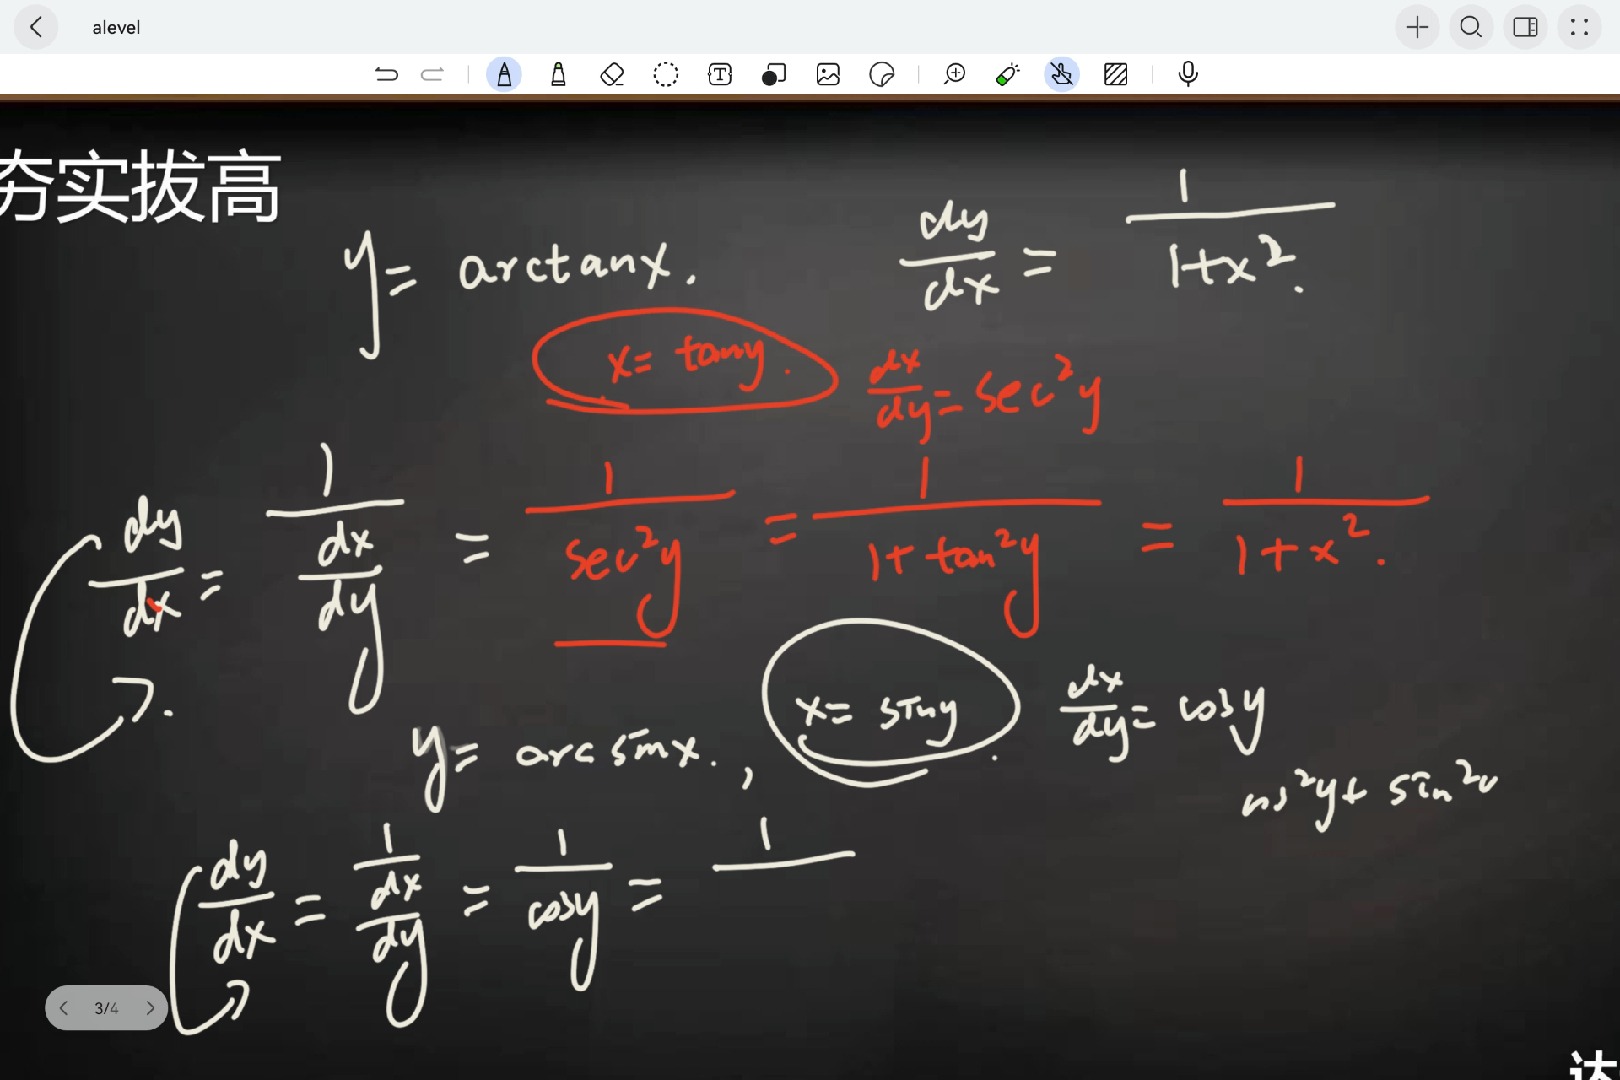 alevel
夯实拔高
y = arctanx. dy/dx = 1/(1+x²).
x = tany. dx/dy = sec²y
dy/dx = 1/(dx/dy) = 1/sec²y = 1/(1+tan²y) = 1/(1+x²).
y = arcsinx. , x = siny . dx/dy = cosy
cos²y + sin²
dy/dx = 1/(dx/dy) = 1/cosy = 1/
3/4
达